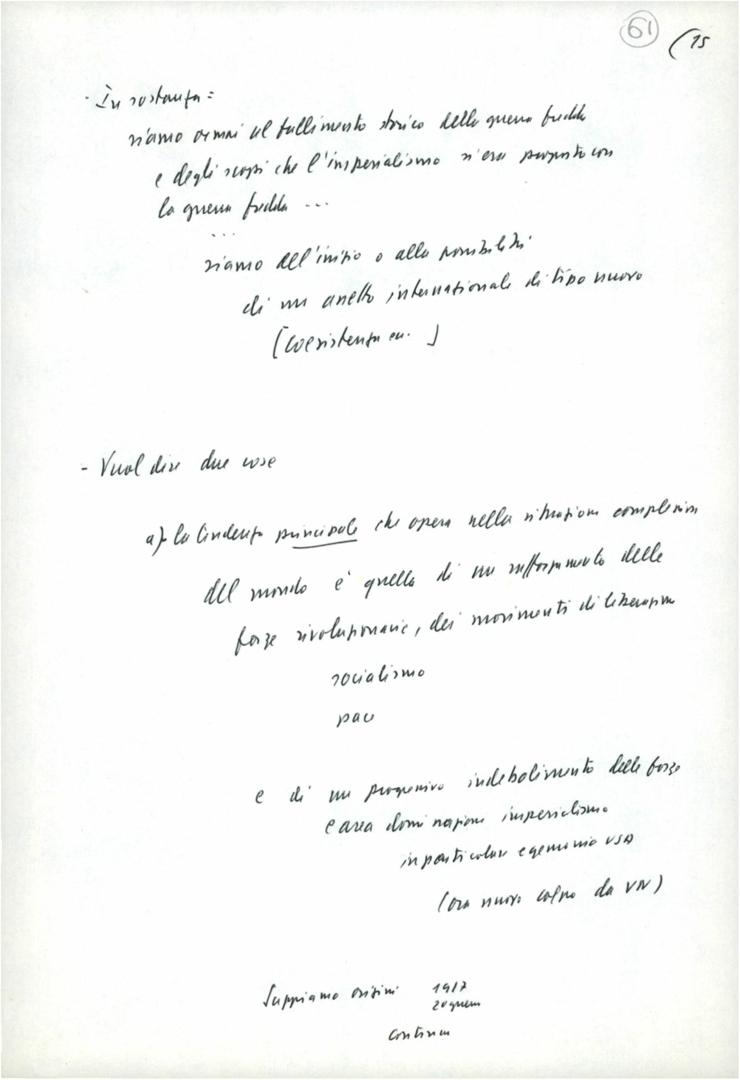 61
(15
· In sostanza:
siamo ormai al fallimento storico della guerra fredda
e degli scopi che l'imperialismo s'era proposto con
la guerra fredda ...
...
siamo all'inizio o alla possibilità
di un assetto internazionale di tipo nuovo
[coesistenza ecc.]
- Vuol dire due cose
a) - la tendenza principale che opera nella situazione complessiva
del mondo è quella di un rafforzamento delle
forze rivoluzionarie, dei movimenti di liberazione
socialismo
pace
e di un progressivo indebolimento delle forze
e area dominazione imperialismo
in particolare egemonia USA
(ora nuovo colpo da VN)
Sappiamo origini 1917
2a guerra
continua